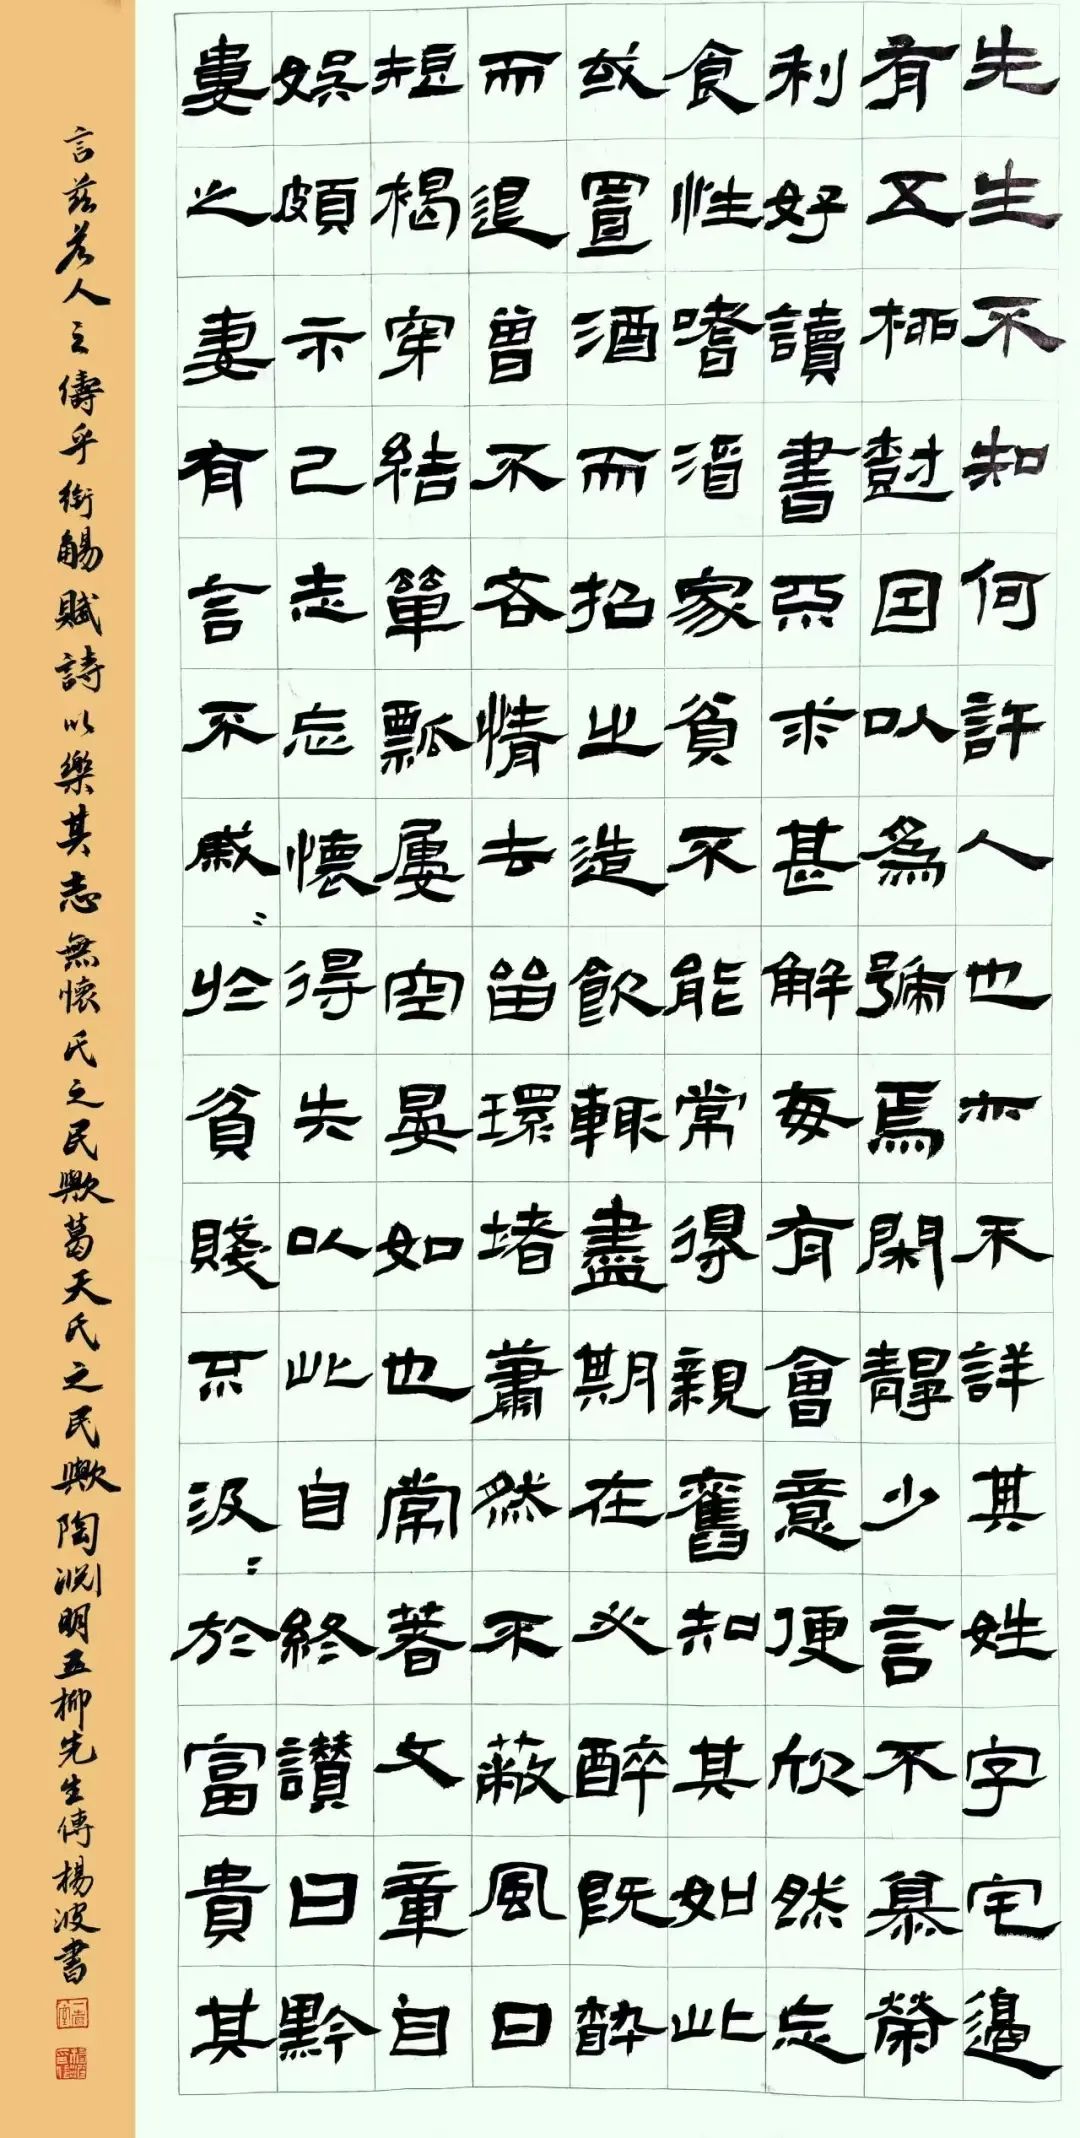 先生不知何許人也亦不詳其姓字宅邊
有五柳樹因以為號焉閑靜少言不慕榮
利好讀書不求甚解每有會意便欣然忘
食性嗜酒家貧不能常得親舊知其如此
或置酒而招之造飲輒盡期在必醉既醉
而退曾不吝情去留環堵蕭然不蔽風日
短褐穿結簞瓢屢空晏如也常著文章自
娛頗示己志忘懷得失以此自終讚曰黔
婁之妻有言不戚〻於貧賤不汲〻於富貴其
言茲若人之儔乎銜觴賦詩以樂其志無懷氏之民歟葛天氏之民歟陶淵明五柳先生傳楊波書